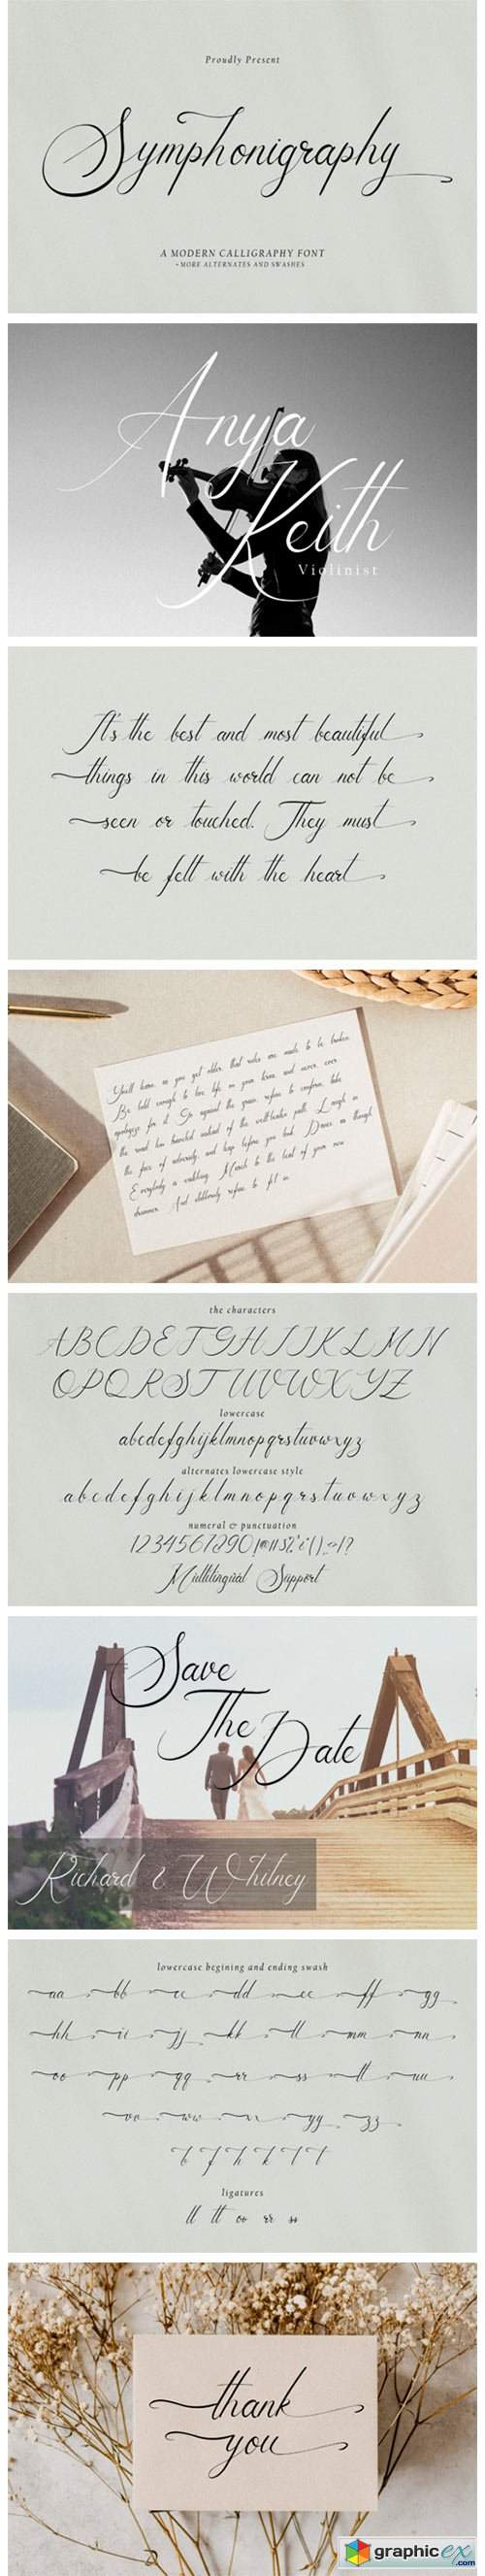 Proudly Present
Symphonigraphy
A MODERN CALLIGRAPHY FONT
+MORE ALTERNATES AND SWASHES
Anya
Keith
Violinist
It's the best and most beautiful
things in this world can not be
seen or touched. They must
be felt with the heart
You'll learn, as you get older, that rules are made to be broken.
Be bold enough to live life on your terms, and never, ever
apologize for it. Go against the grain, refuse to conform, take
the road less traveled instead of the well-beaten path. Laugh in
the face of adversity, and leap before you look. Dance as though
Everybody is watching. March to the beat of your own
drummer. And stubbornly refuse to fit in.
the characters
ABCDEFGHIJKLMN
OPQRSTUVWXYZ
lowercase
abcdefghijklmnopqrstuvwxyz
alternates lowercase style
abcdefghijklmnopqrstuvwxyz
numeral & punctuation
1234567890
Multilingual Support
Save
The
Date
Richard & Whitney
lowercase begining and ending swash
aa bb cc dd ee ff gg
hh ii jj kk ll mm nn
oo pp qq rr ss tt uu
vv ww xx yy zz
b f h k l t
ligatures
ll tt oo rr ss
thank
you
graphicex
.com